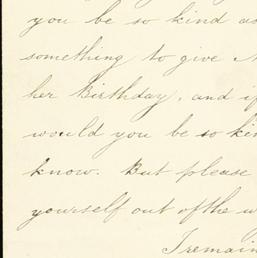 you be so kind as
something to give
her Birthday, and if
would you be so kin
know. But please
yourself out of the w
I remain